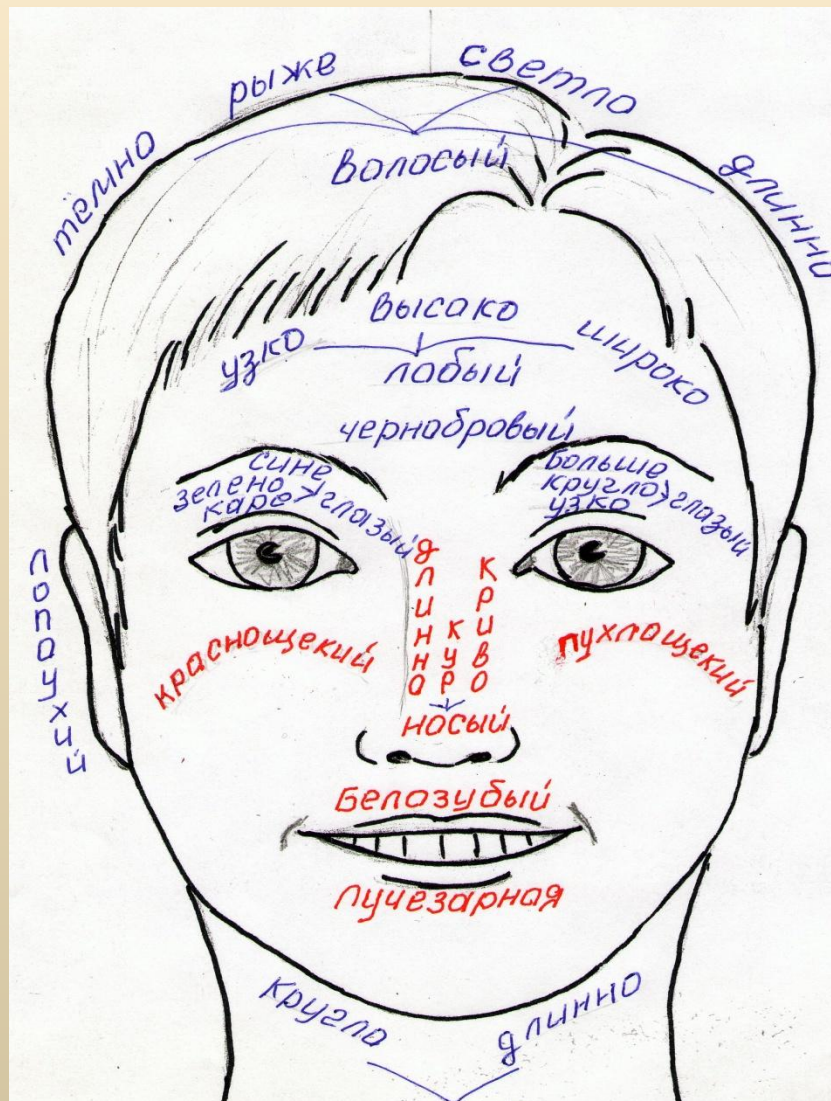 рыже
светло
тёмно
волосый
длинно
высако
узко
широко
лобый
чернобровый
сине
зелено
каре
глазый
больше
кругло
узко
глазый
длинно
кур
криво
носый
лопоухий
краснощекий
пухлощекий
Белозубый
лучезарная
кругло
длинно